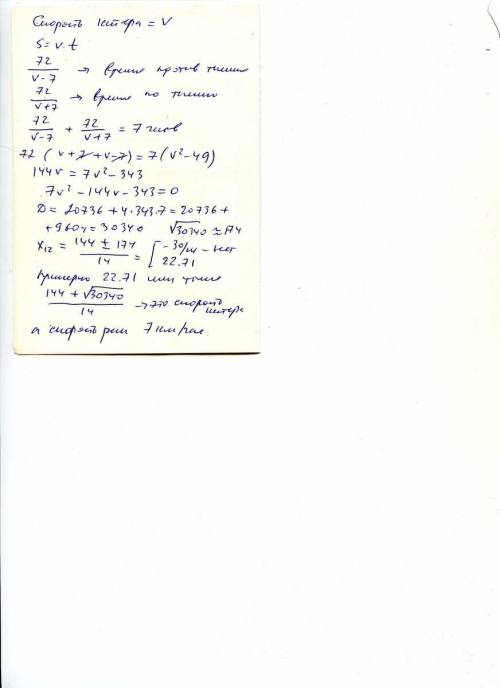 Скорость катера = V
S = v. t
72 / v-7 → время против течения
72 / v+7 → время по течению
72 / v-7 + 72 / v+7 = 7 часов
72 ( v+7+v-7) = 7 (v² - 49)
144v = 7v² - 343
7v² - 144v - 343 = 0
D = 20736 + 4.343.7 = 20736 +
+ 9604 = 30340 √30340 ≈ 174
x12 = 144 ± 174 / 14 = [ -30/14 - нет
22.71
Примерно 22.71 или точно
144 + √30340 / 14 → это скорость катера
а скорость реки 7 км/час.